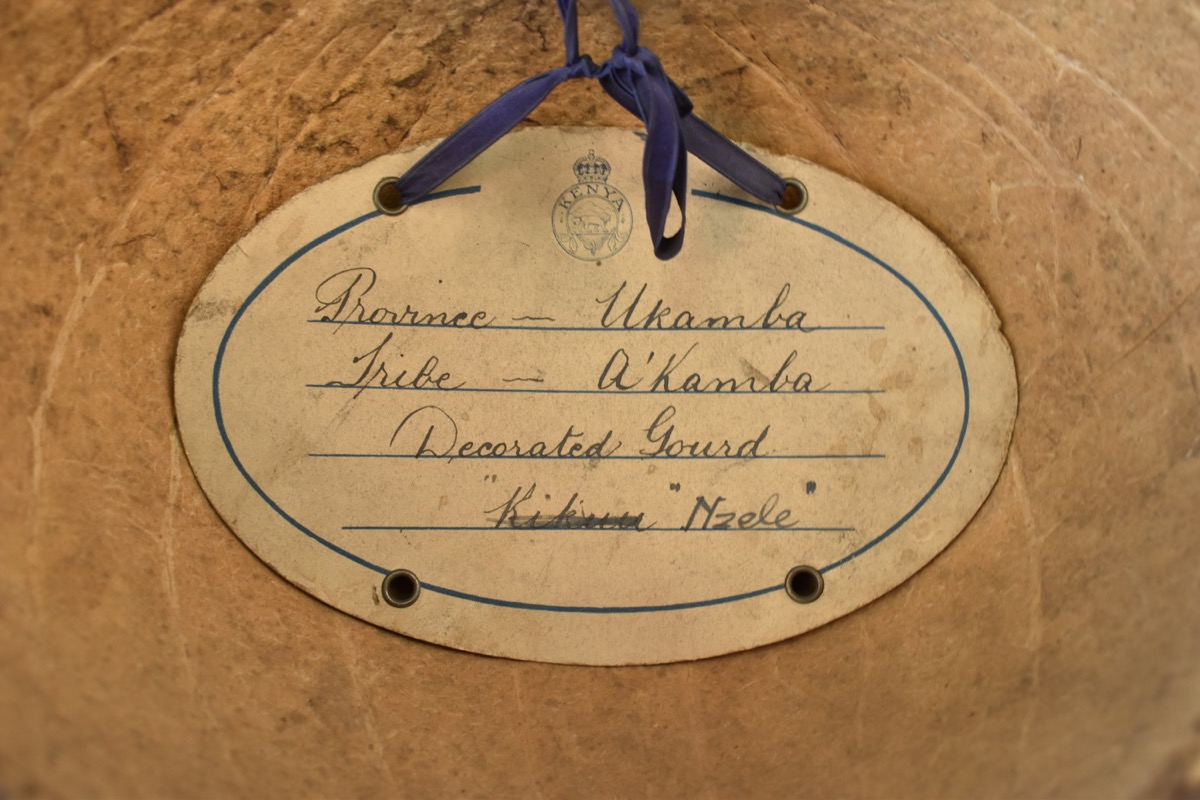 KENYA
Province — Ukamba
Tribe — A'Kamba
Decorated Gourd
"Kikuu "Nzele"